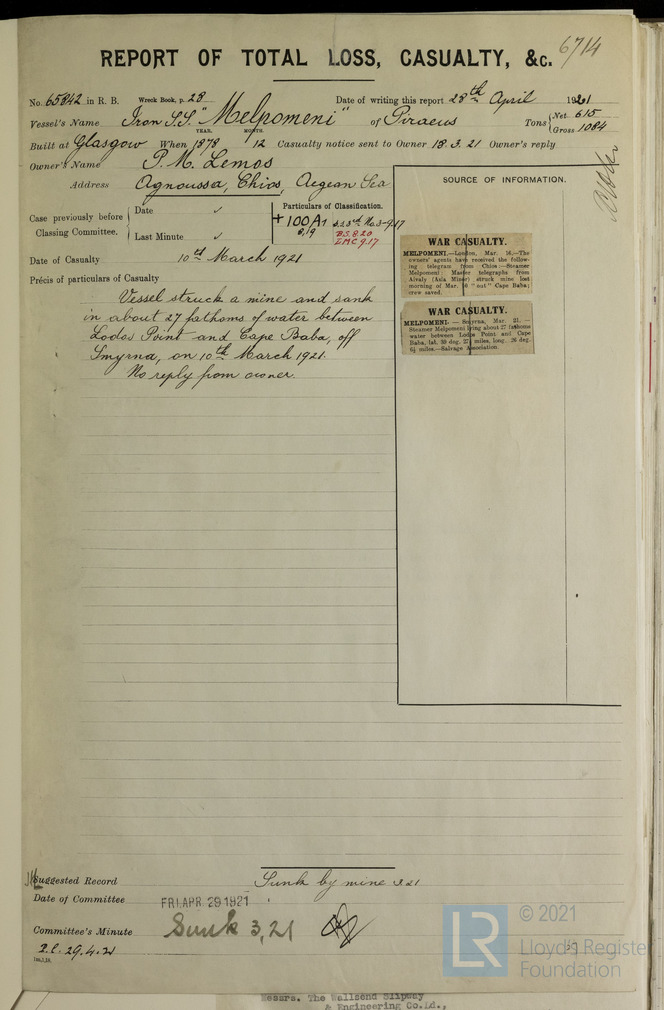 6714
REPORT OF TOTAL LOSS, CASUALTY, &c.
No. 65842 in R. B. Wreck Book, p. 28 Date of writing this report 28th April 1921
Vessel's Name Iron S.S. "Melpomeni" of Piraeus Tons { Net 615 Gross 1084
YEAR. MONTH.
Built at Glasgow When 1878 12 Casualty notice sent to Owner 18.3.21 Owner's reply
Owner's Name P. M. Lemos
Address Agnoussa, Chios, Aegean Sea
Case previously before Classing Committee. { Date ✓
Last Minute ✓
Particulars of Classification.
+100A1
8,19
B.S. 8.20
LMC 9.17
Date of Casualty 10th March 1921
Précis of particulars of Casualty
Vessel struck a mine and sank
in about 27 fathoms of water between
Lodos Point and Cape Baba, off
Smyrna, on 10th March 1921.
No reply from owner.
SOURCE OF INFORMATION.
WAR CASUALTY.
MELPOMENI.—London, Mar. 16.—The
owners' agents have received the follow-
ing telegram from Chios:—Steamer
Melpomeni Master telegraphs from
Aivaly (Asia Minor) struck mine lost
morning of Mar. 10 "out" Cape Baba;
crew saved.
WAR CASUALTY.
MELPOMENI. — Smyrna, Mar. 21. —
Steamer Melpomeni lying about 27 fathoms
water between Lodos Point and Cape
Baba, lat. 39 deg. 27½ miles, long. 26 deg.
6½ miles.—Salvage Association.
Suggested Record Sunk by mine 3.21
Date of Committee FRI. APR. 29 1921
Committee's Minute Sunk 3,21
29.4.21
LR
© 2021
Lloyd's Register
Foundation
Messrs. The Wallsend Slipway
& Engineering Co. Ld.,